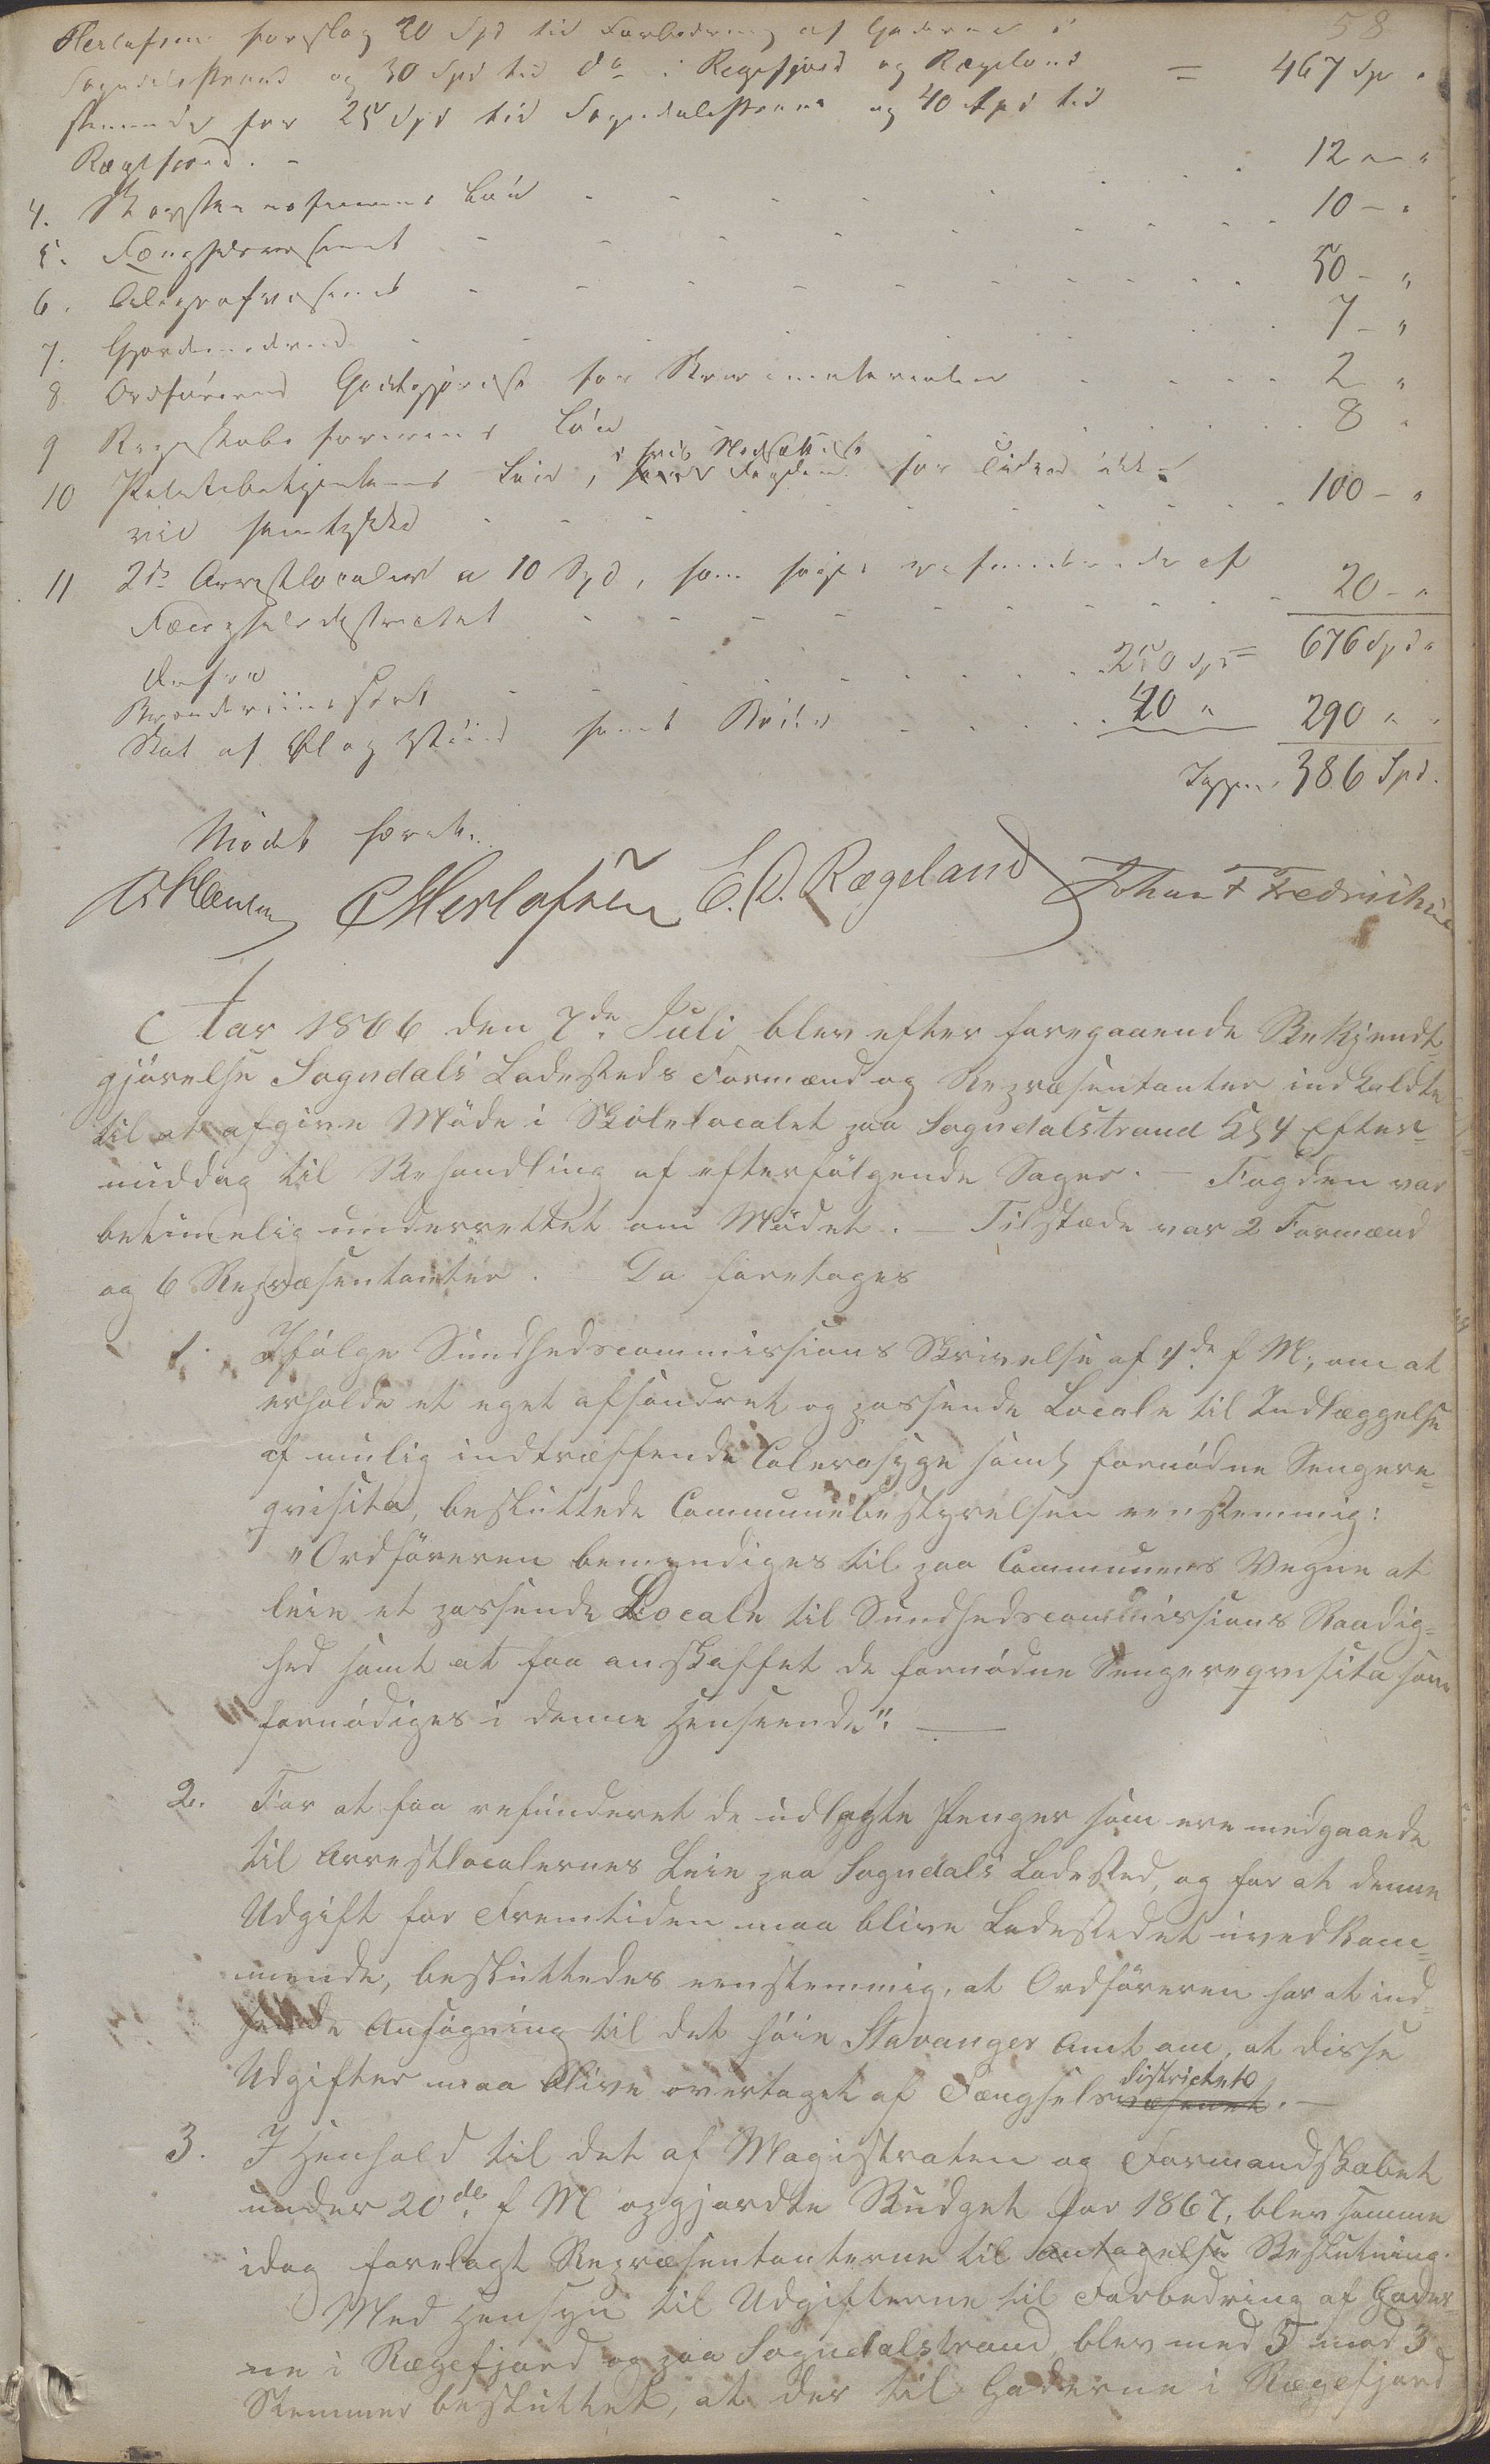 58
Herlofsen forslog 20 Spd til Forbedring af Gaderne i
Sogndalstrand og 30 Spd til do i Regefjord og Rægeland = 467 Sp "
stemte for 25 Spd til Sogndalstrand og 40 Spd til
Rægefjord. - 12 - "
4. Skorsteensfeierens Løn - - - 10 - "
5. Fængselsvæsenet - - - 50 - "
6. Telegrafvæsenet - - - 7 - "
7. Gjordemoderen - - -
8 Ordførerens Godtgjørelse for Skrivematerialier - - - 2 "
9 Regnskabsførerens Løn - - - 8 "
i fald Nedsættelse
10 Politibetjentens Løn, Fogden for Tiden ikke
vil samtykke - - - 100 - "
11 2de Arrestlocaler a 10 Spd, som søges refunderede af
Fængselsdistrictet - - - 20 - "
676 Spd "
Derfra
Brændeviinsafgift - - - 250 Spd =
Skat af Øl og Viin samt Bøder - - - 40 " 290 " "
Igjen 386 Spd.
Mødet hævet.
Herlofsen E. O. Rægeland Johan F Fredrichsen
Aar 1866 den 7de Juli blev efter foregaaende Bekjendt-
gjørelse Sogndals Ladesteds Formænd og Repræsentanter indkaldte
til at afgive Møde i Skolelocalet paa Sogndalstrand Kl 4 Efter-
middag til Behandling af efterfølgende Sager. - Fogden var
betimelig underrettet om Mødet. - Tilstæde var 2 Formænd
og 6 Repræsentanter. Da foretages
1. Ifølge Sundhedscommissions Skrivelse af 4de f M, om at
erholde et eget afsondret og passende Locale til Indlæggelse
af mulig indtræffende Colerasyge samt fornødne Sengere-
qvisita, besluttede Communebestyrelsen eenstemmig:
"Ordføreren bemyndiges til paa Communens Vegne at
leie et passende Locale til Sundhedscommissions Raadig-
hed samt at faa anskaffet de fornødne Sengereqvisita som
fornødiges i denne Henseende". -
2. For at faa refunderet de udlagte Penger som ere medgaaede
til Arrestlocalernes Leie paa Sogndals Ladested, og for at denne
Udgift for Fremtiden maa blive Ladestedet uvedkom-
mende, besluttedes eenstemmig, at Ordføreren har at ind-
sende Ansøgning til det høie Stavanger Amt om, at disse
districtete
Udgifter maa blive overtaget af Fængselsvæsenet. -
3. I Henhold til det af Magistraten og Formandskabet
under 20de f M opgjordte Budget for 1867, blev samme
idag forelagt Repræsentanterne til antagelse Beslutning.
Med Hensyn til Udgifterne til Forbedring af Gader-
ne i Rægefjord og paa Sogndalstrand blev med 5 mod 3
Stemmer besluttet, at der til Gaderne i Rægefjord